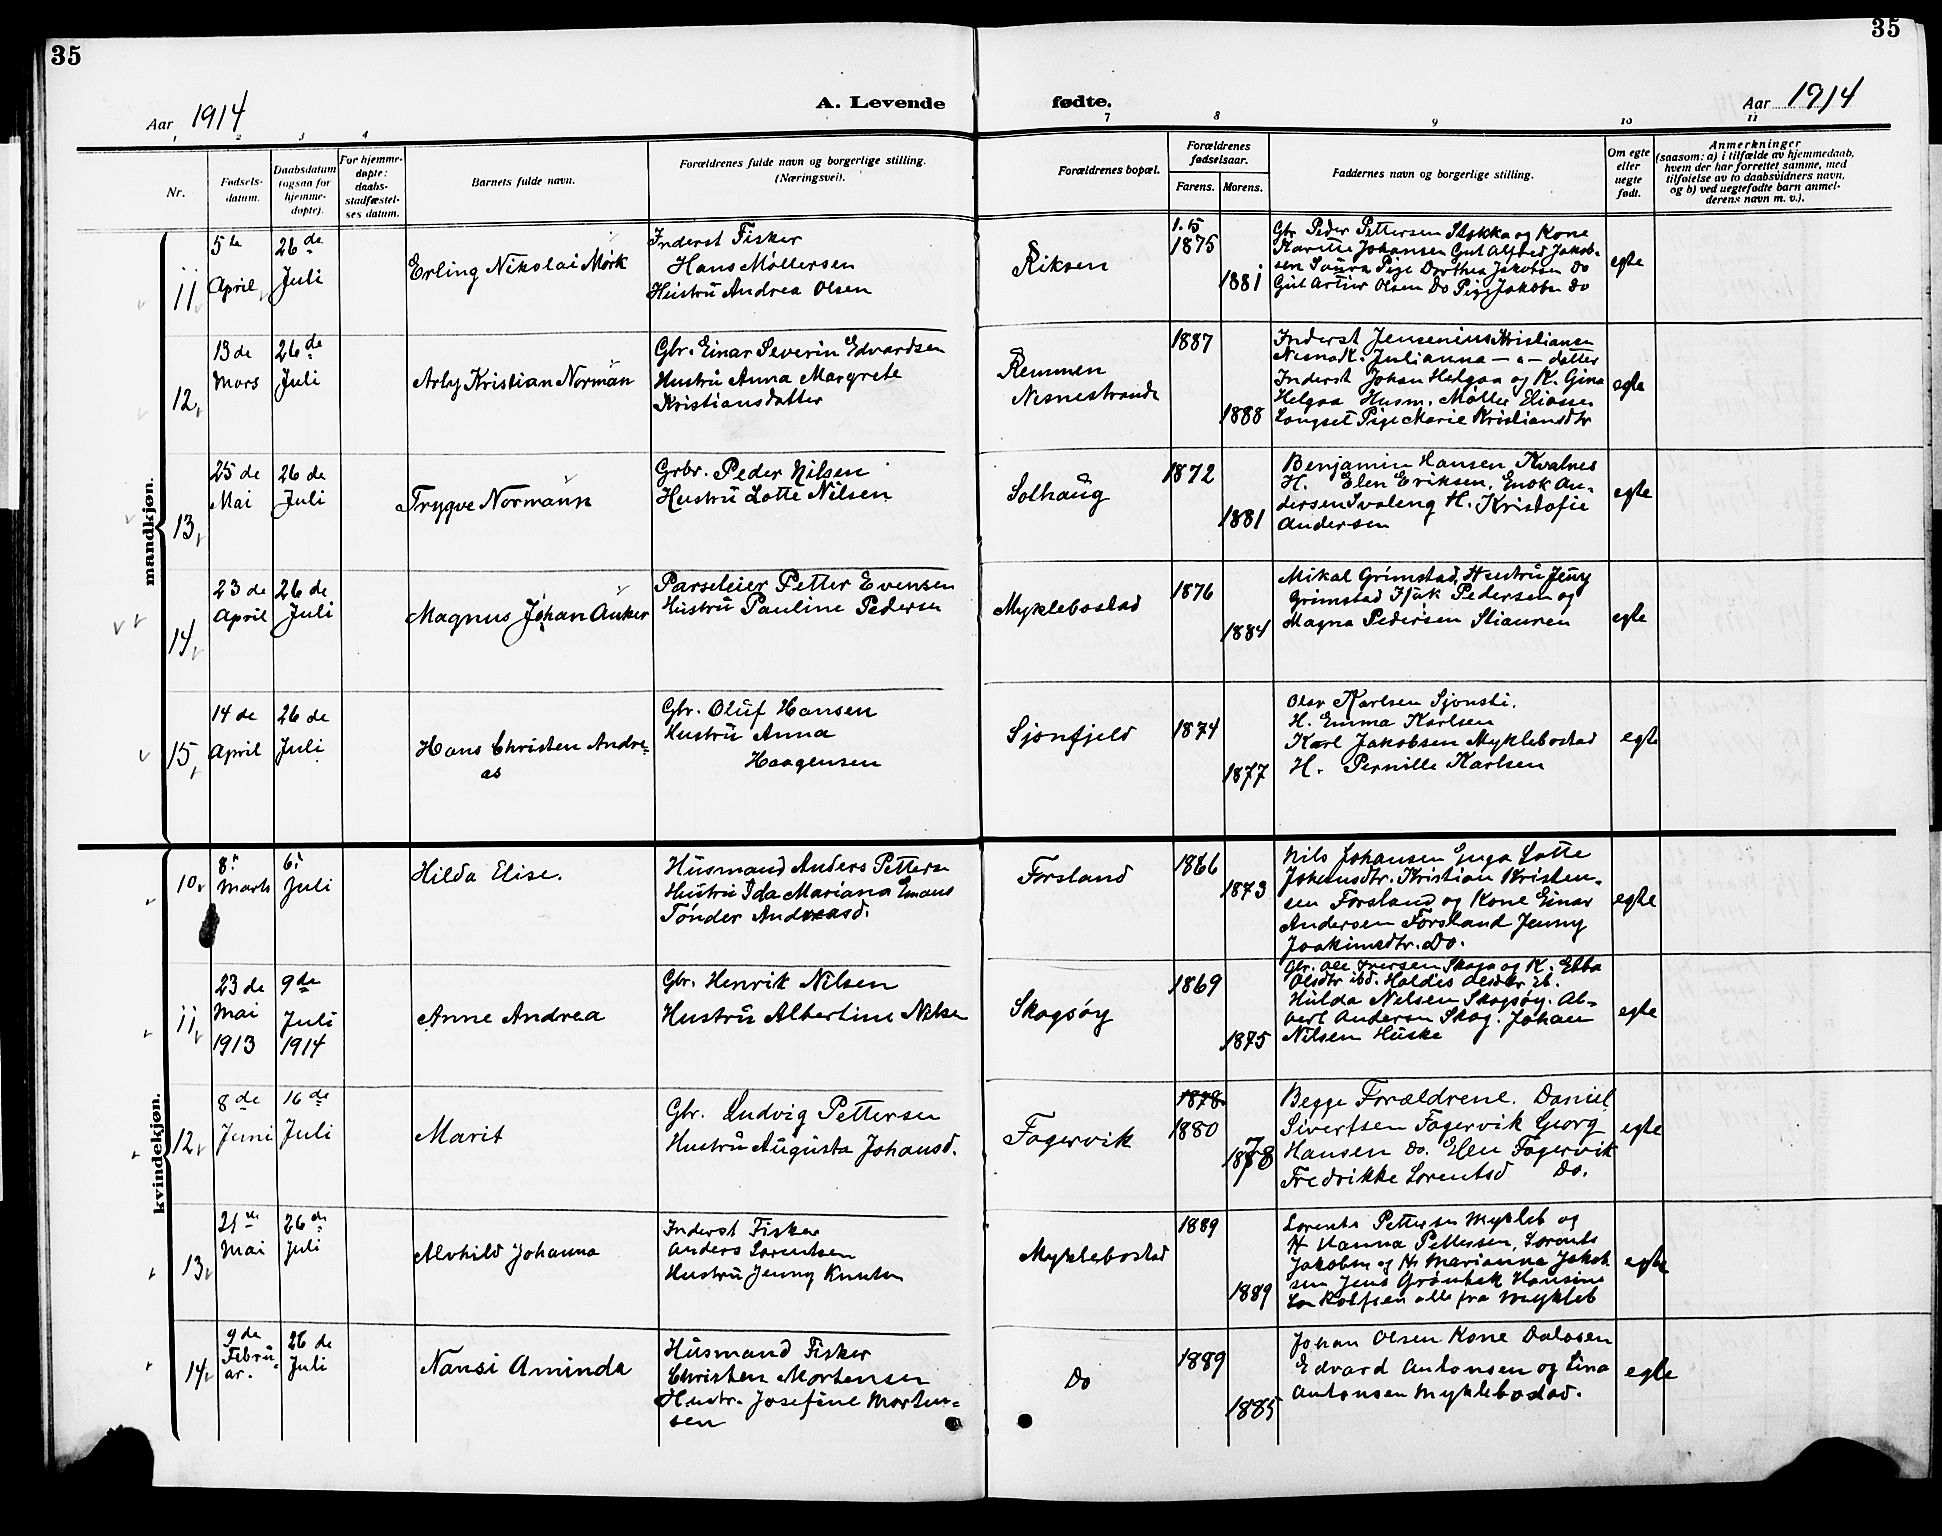 35
35
Aar 1914
A. Levende
fødte.
Aar 1914
1 2 3 4 7 8 9 10 11
Nr.
Fødsels-
datum.
Daabsdatum
(ogsaa for
hjemme-
døpte).
For hjemme-
døpte:
daabs-
stadfæstel-
ses datum.
Barnets fulde navn.
Forældrenes fulde navn og borgerlige stilling.
(Næringsvei).
Forældrenes bopæl.
Forældrenes
fødselsaar.
Farens. Morens.
Faddernes navn og borgerlige stilling.
Om egte
eller
uegte
født.
Anmerkninger
(saasom: a) i tilfælde av hjemmedaab,
hvem der har forrettet samme, med
tilføielse av to daabsvidners navn,
og b) ved uegtefødte barn anmel-
derens navn m. v.).
mandkjøn.
11
5te
April
26de
Juli
Erling Nikolai Mørk
Inderst Fisker
Hans Møllersen
Hustru Andrea Olsen
Riksen
1875
1881
Gbr Peder Pettersen Stokka og Kone
Johansen Gut Alfred Jakob-
sen Pige Dorthea Jakobsen Do
Gut Artur Olsen Do Pige Jakobs Do
egte
12
13de
Mars
26de
Juli
Arly Kristian Norman
Gbr. Einar Severin Edvardsen
Hustru Anna Margrete
Kristiansdatter
Remmen
Nesnestrande
1887
1888
Inderst Jensenius Kristiansen
Julianna - " - datter
Inderst Johan Helgaa og K. Gina
Helgaa Husm. Møller Eliassen
Langset Pige Marie Kristiansdtr
egte
13
25de
Mai
26de
Juli
Trygve Normann
Grbr. Peder Nilsen
Hustru Lotte Nilsen
Solhaug
1872
1881
Benjamin Hansen Kvalnes
H. Elen Eriksen, Enok An-
dersen Svaleng H. Kristofie
Andersen
egte
14
23de
April
26de
Juli
Magnus Johan Anker
Parseleier Petter Evensen
Hustru Pauline Pedersen
Myklebostad
1876
1884
Mikal Grimstad, Hustru Jenny
Grimstad Isak Pedersen og
Magna Pedersen Stiauren
egte
15
14de
April
26de
Juli
Hans Christen Andre-
as
Gbr. Oluf Hansen
Hustru Anna
Haagensen
Sjonfjeld
1874
1877
Olav Karlsen Sjonsti.
H. Emma Karlsen
Karl Jakobsen Myklebostad
H. Pernille Karlsen
egte
kvindekjøn.
10
8.
Marts
6.
Juli
Hilda Elise.
Husmand Anders Petters
Hustru Ida Mariana Emans
Tønder Andreasd.
Forsland
1866
1873
Nils Johansen Enga Lotte
Johansdtr. Kristian Kristen-
sen Forsland og Kone Einar
Andersen Forsland Jenny
Joakimsdtr. Do.
egte
11
23de
Mai
1913
9de
Juli
1914
Anne Andrea
Gbr. Henrik Nilsen
Hustru Albertine Nilse
Skogsøy
1869
1875
Gbr. Ole Iversen Skogs og K. Ebba
Olsdtr ibd. Haldis Olsdtr ib.
Hulda Nilsen Skogsøy. Al-
bert Andersen Skog. Johan
Nilsen Huske
egte
12
8de
Juni
16de
Juli
Marit
Gbr. Ludvig Pettersen
Hustru Augusta Johansd.
Fagervik
1878
1880
1878
Begge Forældrene. Daniel
Sivertsen Fagervik Georg
Hansen Do. Elen Fagervik
Fredrikke Lorentsd Do.
egte
13
21de
Mai
26de
Juli
Alvhild Johanna
Inderst Fisker
Anders Lorentsen
Hustru Jenny Knutsen
Myklebostad
1889
1889
Lorents Pettersen Mykleb og
H Hanna Pettersen, Lorents
Jakobsen og H. Marianna Jakob
sen Jens Grønbek Hansine
Rolfsen alle fra Mykleb
egte
14
9de
Febru-
ar.
26de
Juli
Nansi Aminda
Husmand Fisker
Christen Mortensen
Hustr. Josefine Morten-
sen
Do
1889
1885
Johan Olsen Kone Dalosen
Edvard Antonsen og Lina
Antonsen Myklebostad.
egte